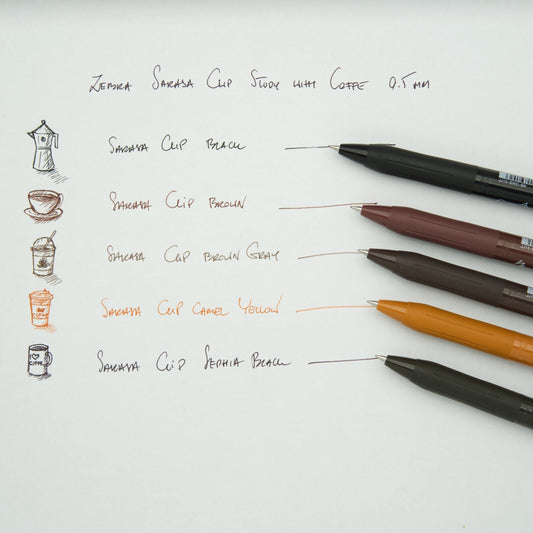 Zebra Sarasa Clip Study with Coffe 0.5 mm
Sarasa Clip Black
Sarasa Clip Brown
Sarasa Clip Brown Gray
Sarasa Clip Camel Yellow
Sarasa Clip Sephia Black
I ♥ COFFE